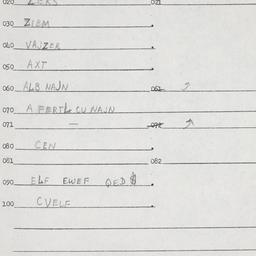 020 ZEKS 021
030 ZIBM
040 VAJZER
050 AXT
060 ALB NAJN 061
070 A FERTL CU NAJN
071 — 072
080 CEN
081 082
090 ELF EWEF QED $
100 CVELF